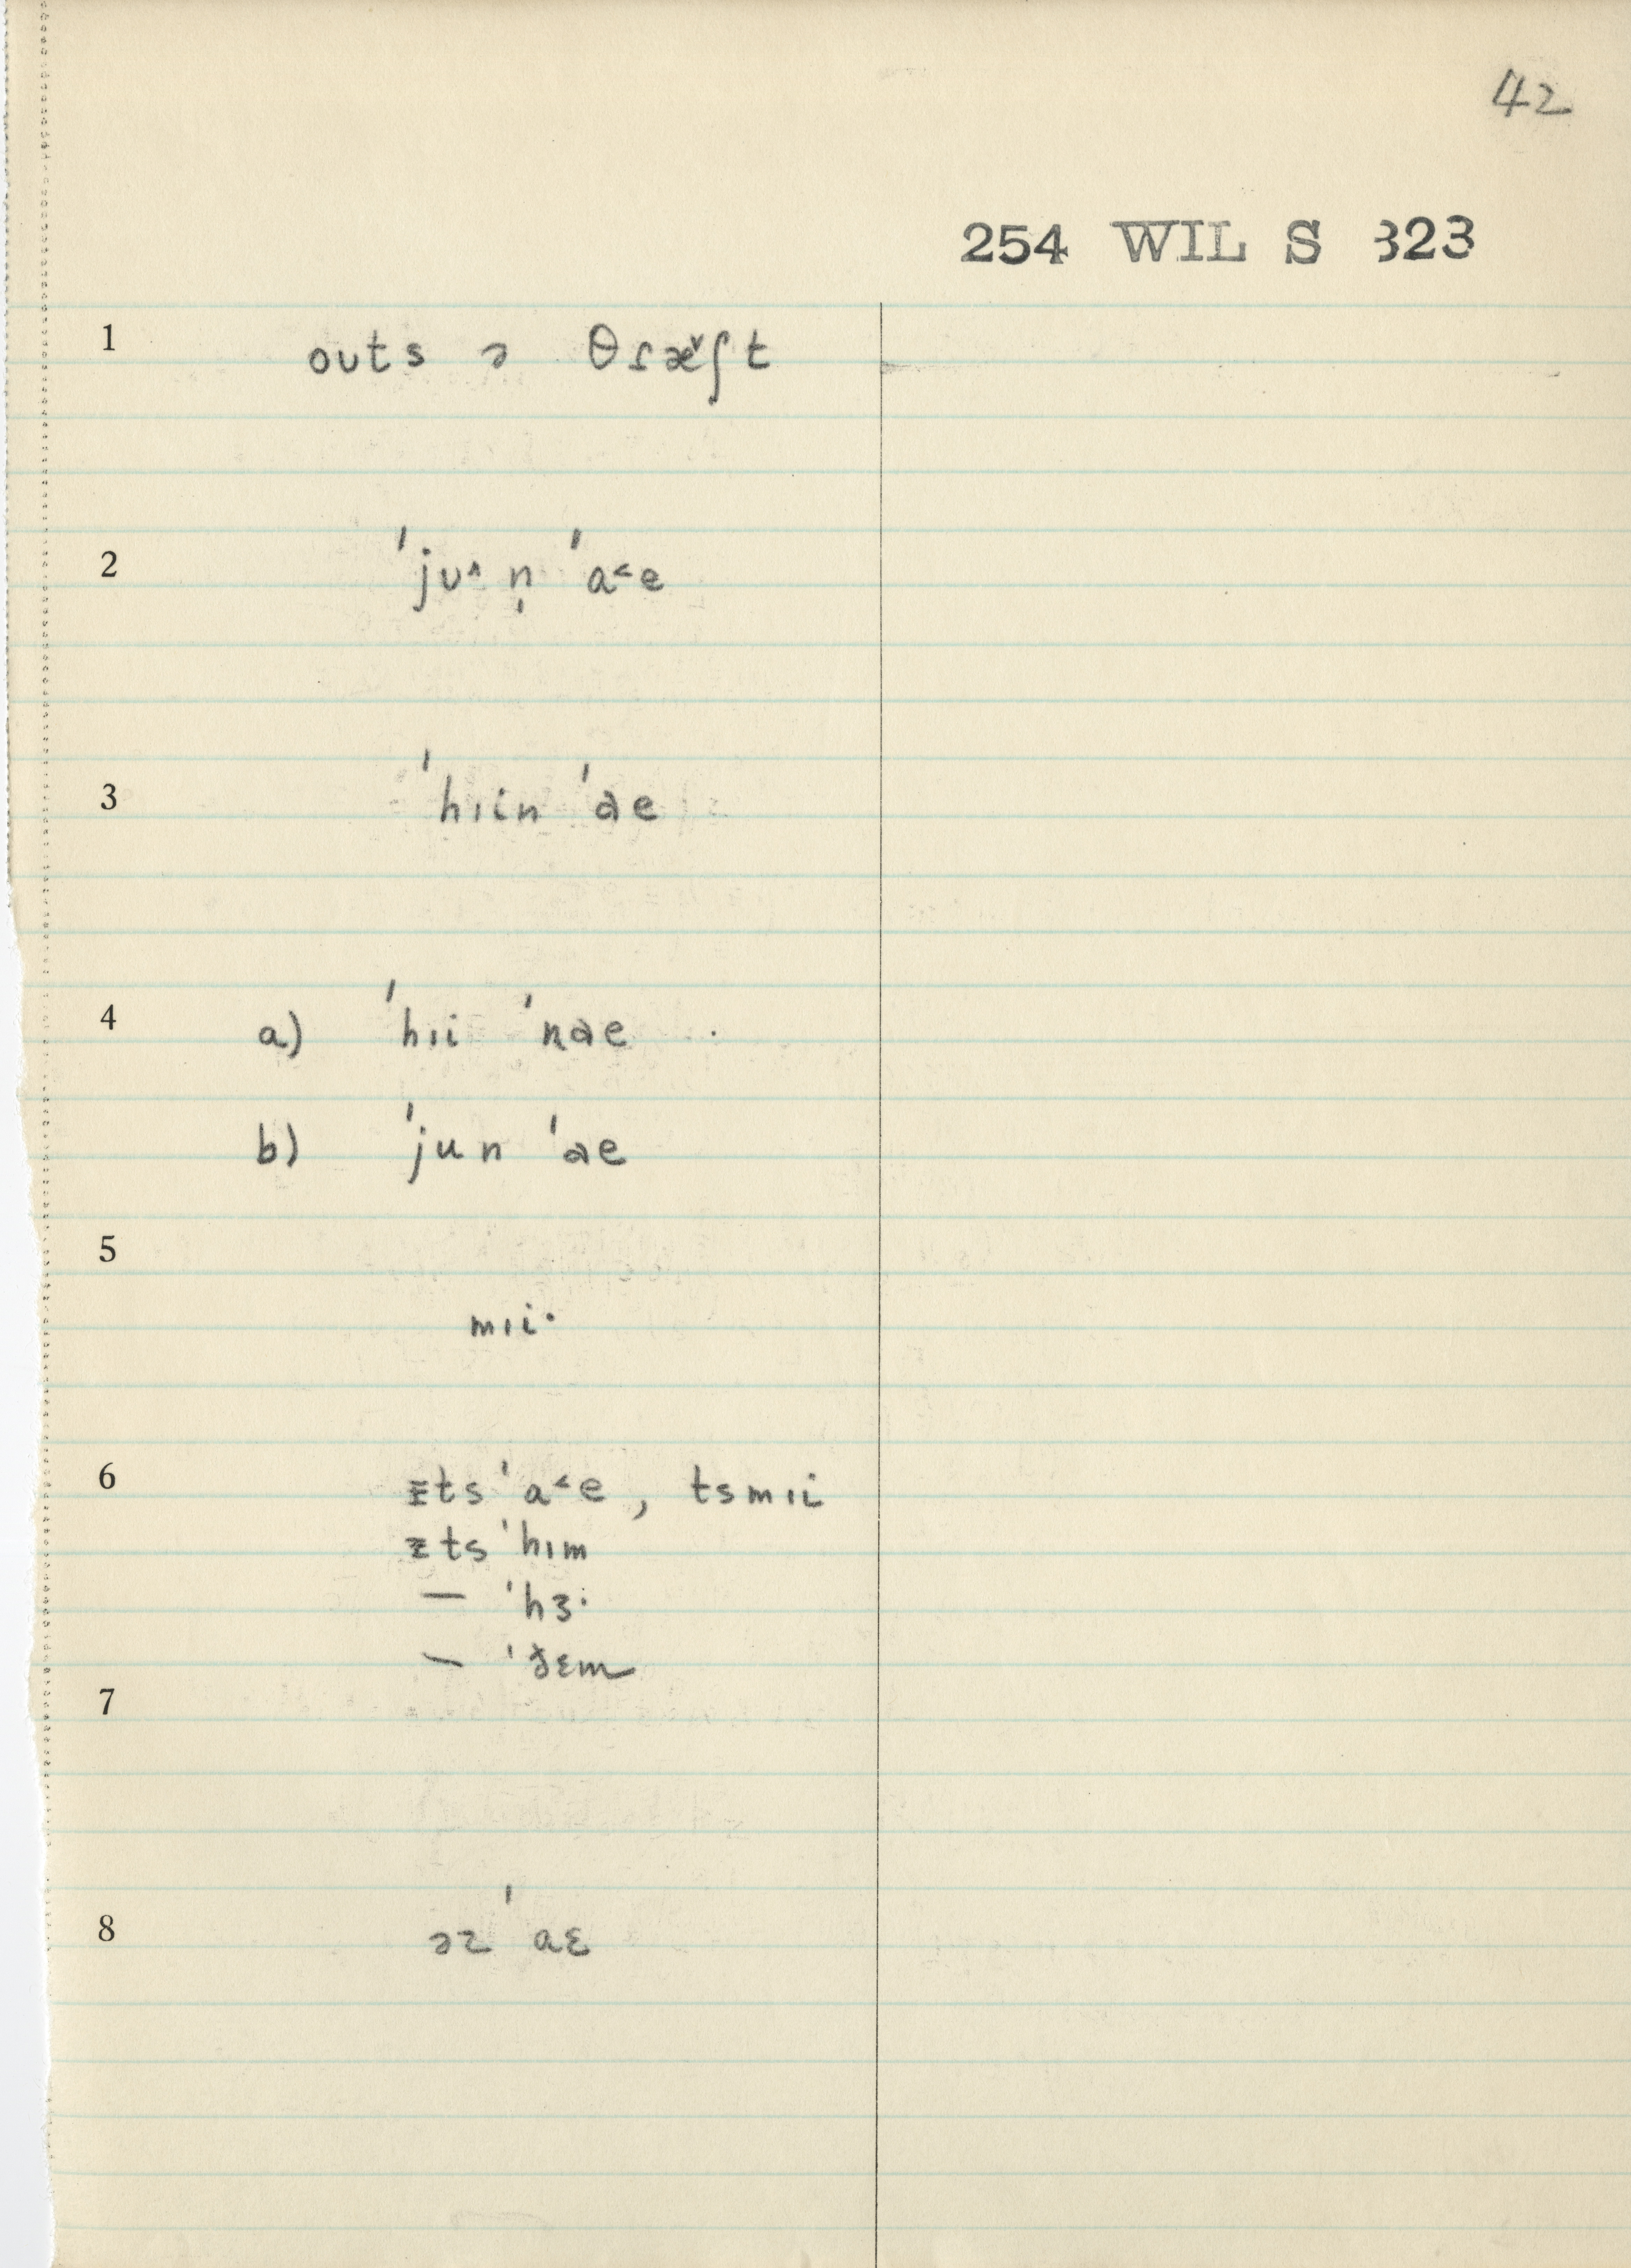 42
254 WIL S 323
1 outs ə θɾæ˅ʃt
2 ˈjʊ˄ n̩ ˈa˂e
3 ˈhɪin ˈɑe
4 a) ˈhɪi ˈnɑe
b) ˈjun ˈɑe
5
mɪi·
6 ɪts ˈa˂e, tsmɪi
ɪts ˈhɪm
— ˈhɜ·
— ˈðɛm
7
8 əz ˈaɛ